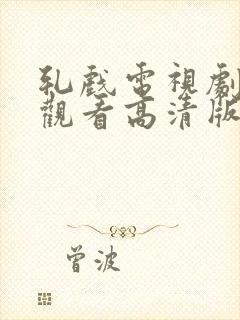 乳戲電視劇
觀看高清版
曾波